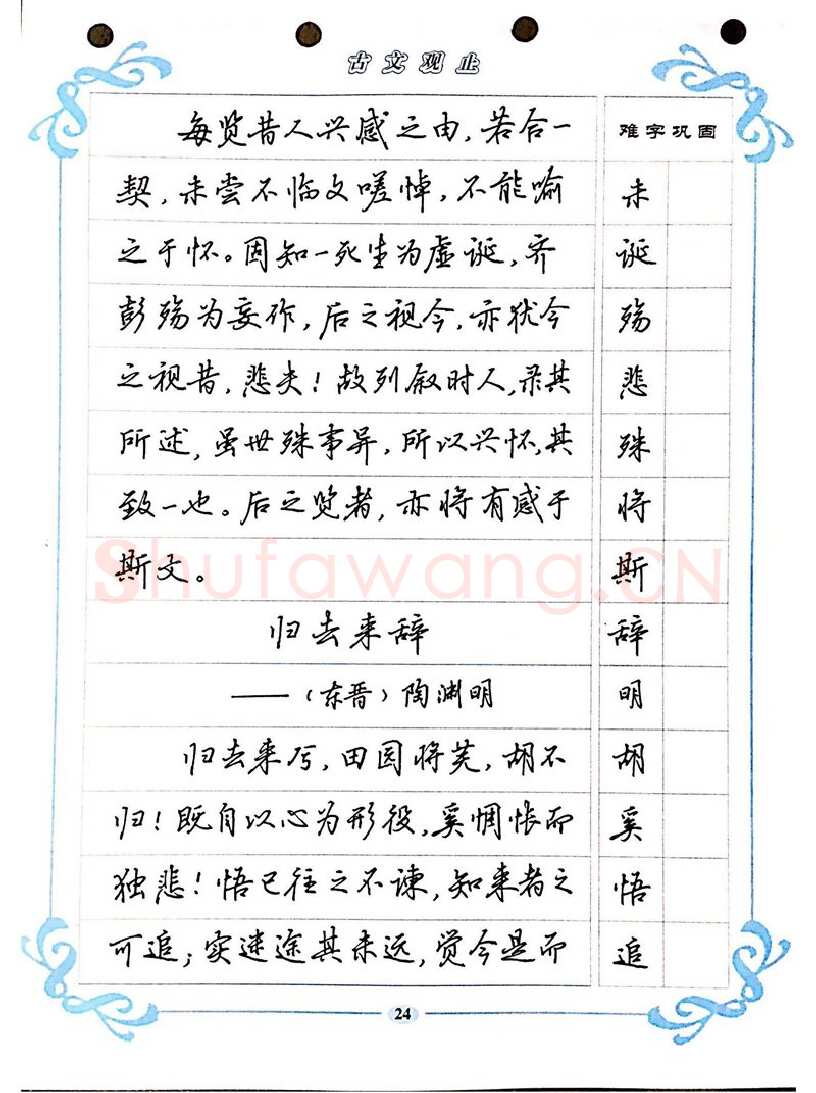 古文观止
每览昔人兴感之由，若合一
契，未尝不临文嗟悼，不能喻
之于怀。固知一死生为虚诞，齐
彭殇为妄作，后之视今，亦犹今
之视昔，悲夫！故列叙时人，录其
所述，虽世殊事异，所以兴怀，其
致一也。后之览者，亦将有感于
斯文。
归去来辞
——（东晋）陶渊明
归去来兮，田园将芜，胡不
归！既自以心为形役，奚惆怅而
独悲！悟已往之不谏，知来者之
可追；实迷途其未远，觉今是而
难字巩固
未
诞
殇
悲
殊
将
斯
辞
明
胡
奚
悟
追
Shufawang.CN
24